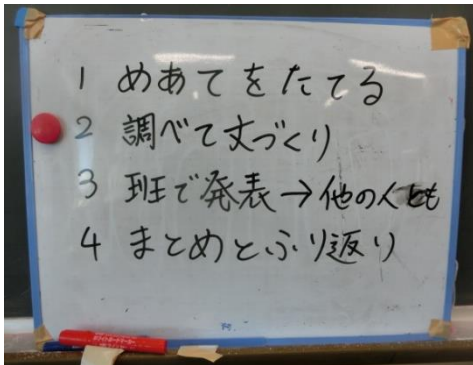 1 めあてをたてる
2 調べて丈づくり
3 班で発表→他の人とも
4 まとめとふり返り